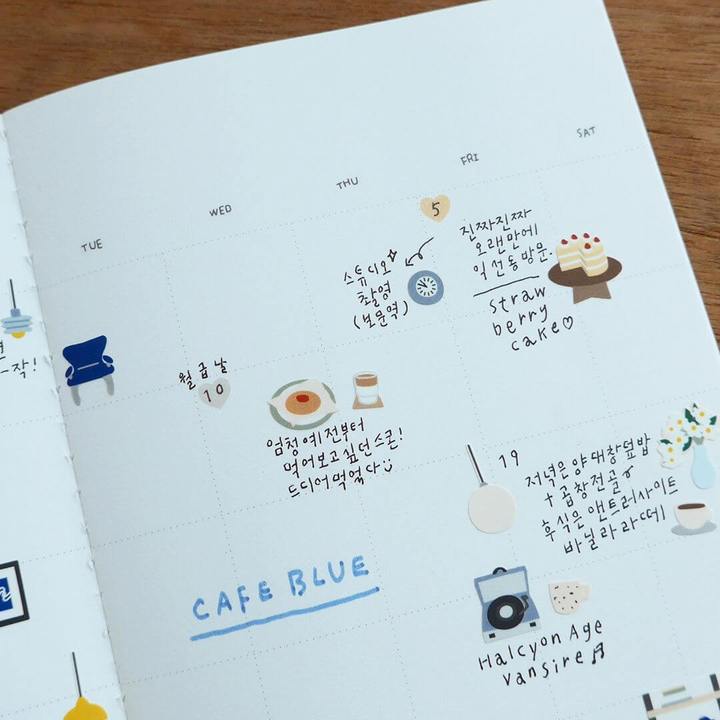 SAT
FRI
THU
WED
TUE
5
진짜진짜
오랜만에
익선동방문.
straw
berry
cake♡
스튜디오
촬영
(보문역)
월급날
10
엄청예전부터
먹어보고싶던스콘!
드디어먹었다
19
저녁은양대창덮밥
+곱창전골
후식은앤트러사이트
바닐라라떼
CAFE BLUE
Halcyon Age
Vansire
작!